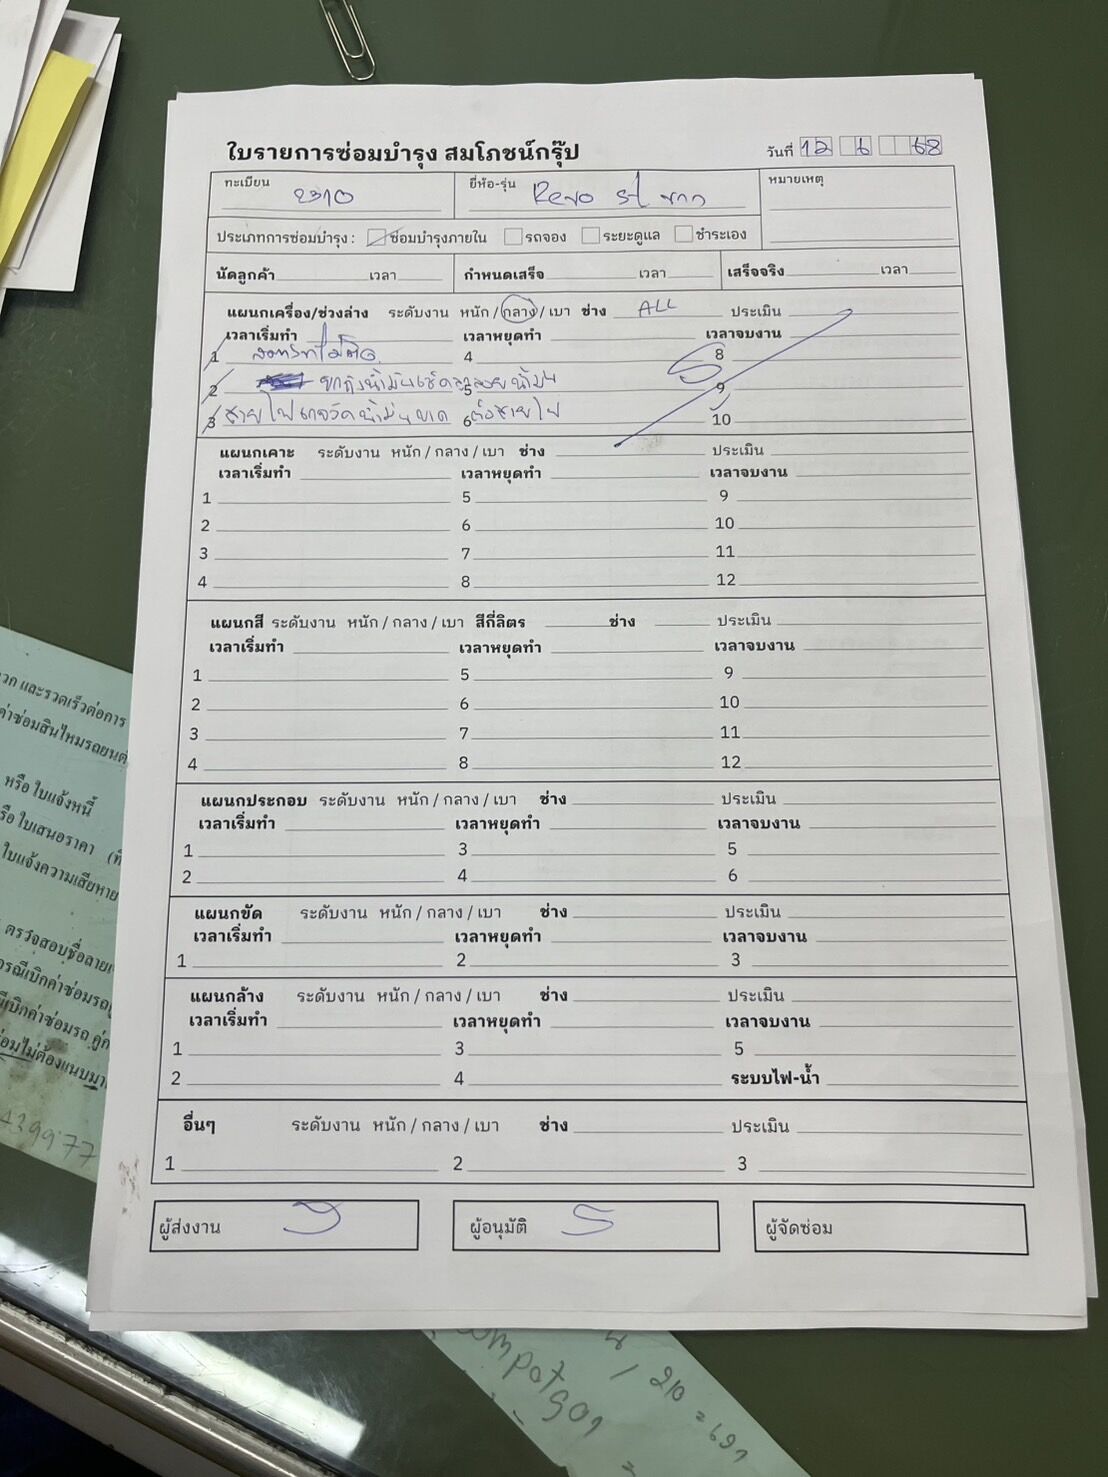 ใบรายการซ่อมบำรุง สมโภชน์กรุ๊ป
วันที่ 12 6 68
ทะเบียน 2310
ยี่ห้อ-รุ่น Revo st ขาว
หมายเหตุ
ประเภทการซ่อมบำรุง : ซ่อมบำรุงภายใน รถจอง ระยะดูแล ชำระเอง
นัดลูกค้า เวลา กำหนดเสร็จ เวลา เสร็จจริง เวลา
แผนกเครื่อง/ช่วงล่าง ระดับงาน หนัก / กลาง / เบา ช่าง ALL ประเมิน
เวลาเริ่มทำ เวลาหยุดทำ เวลาจบงาน
1 สตาร์ทไม่ติด 4 8
2 ยกถังน้ำมันเช็คลูกลอยน้ำมัน 5 9
3 สายไฟเกจวัดน้ำมันขาด 6 ต่อสายไฟ 10
แผนกเคาะ ระดับงาน หนัก / กลาง / เบา ช่าง ประเมิน
เวลาเริ่มทำ เวลาหยุดทำ เวลาจบงาน
1 5 9
2 6 10
3 7 11
4 8 12
แผนกสี ระดับงาน หนัก / กลาง / เบา สีกี่ลิตร ช่าง ประเมิน
เวลาเริ่มทำ เวลาหยุดทำ เวลาจบงาน
1 5 9
2 6 10
3 7 11
4 8 12
แผนกประกอบ ระดับงาน หนัก / กลาง / เบา ช่าง ประเมิน
เวลาเริ่มทำ เวลาหยุดทำ เวลาจบงาน
1 3 5
2 4 6
แผนกขัด ระดับงาน หนัก / กลาง / เบา ช่าง ประเมิน
เวลาเริ่มทำ เวลาหยุดทำ เวลาจบงาน
1 2 3
แผนกล้าง ระดับงาน หนัก / กลาง / เบา ช่าง ประเมิน
เวลาเริ่มทำ เวลาหยุดทำ เวลาจบงาน
1 3 5
2 4 ระบบไฟ-น้ำ
อื่นๆ ระดับงาน หนัก / กลาง / เบา ช่าง ประเมิน
1 2 3
ผู้ส่งงาน
ผู้อนุมัติ
ผู้จัดซ่อม
และรวดเร็วต่อการ
ค่าซ่อมสินไหมรถยนต์
หรือ ใบแจ้งหนี้
ใบเสนอราคา
ใบแจ้งความเสียหาย
ตรวจสอบชื่อ
439977